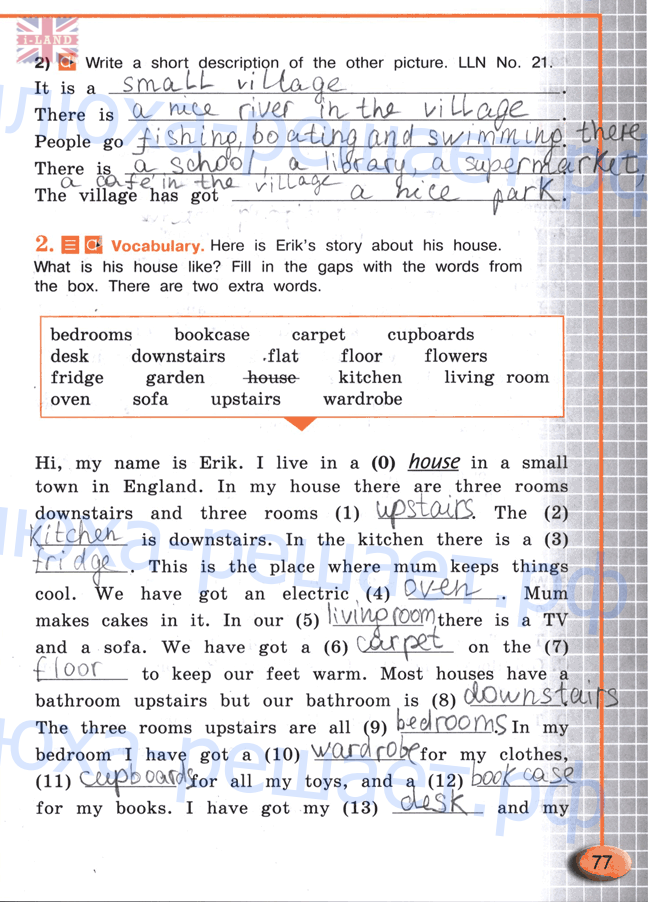 i-LAND
2) Write a short description of the other picture. LLN No. 21.
It is a small village.
There is a nice river in the village.
People go fishing, boating and swimming. there
There is a school, a library, a supermarket,
a cafe in the village
The village has got a nice park.
2. Vocabulary. Here is Erik's story about his house.
What is his house like? Fill in the gaps with the words from
the box. There are two extra words.
bedrooms bookcase carpet cupboards
desk downstairs flat floor flowers
fridge garden house kitchen living room
oven sofa upstairs wardrobe
Hi, my name is Erik. I live in a (0) house in a small
town in England. In my house there are three rooms
downstairs and three rooms (1) upstairs. The (2)
Kitchen is downstairs. In the kitchen there is a (3)
fridge. This is the place where mum keeps things
cool. We have got an electric (4) oven. Mum
makes cakes in it. In our (5) living room there is a TV
and a sofa. We have got a (6) carpet on the (7)
floor to keep our feet warm. Most houses have a
bathroom upstairs but our bathroom is (8) downstairs.
The three rooms upstairs are all (9) bedrooms. In my
bedroom I have got a (10) wardrobe for my clothes,
(11) cupboards for all my toys, and a (12) book case
for my books. I have got my (13) desk and my
77
люха-решает.рф
люха-решает.рф
люха-решает.рф